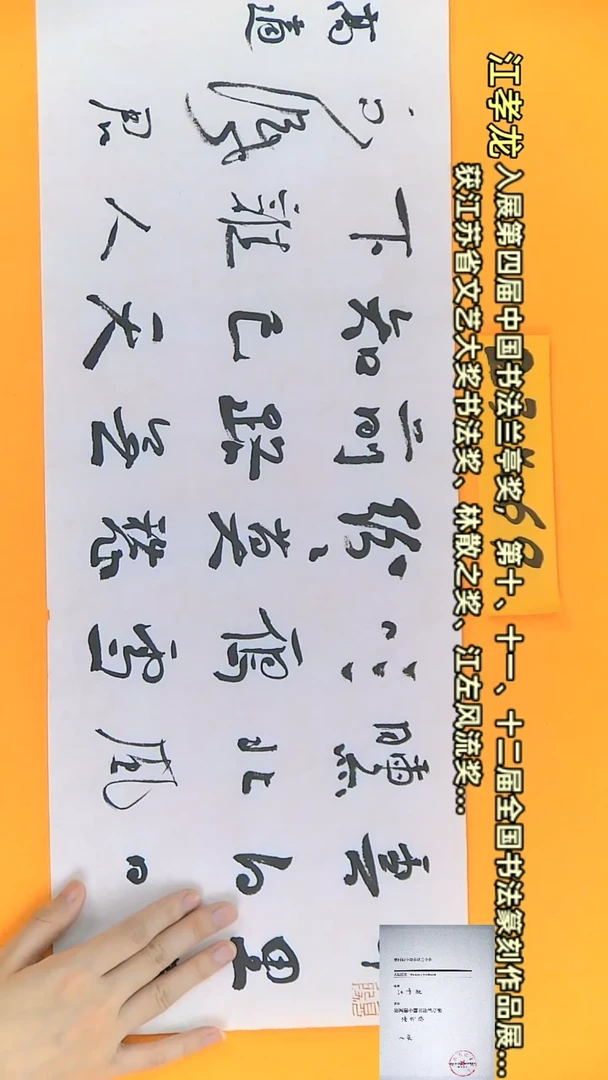 江孝龙 入展第四届中国书法兰亭奖，第十、十一、十二届全国书法篆刻作品展...
获江苏省文艺大奖书法奖、林散之奖、江左风流奖...
千里
雲白日
曛北風
吹雁雪
紛〻莫愁
前路無
知己天
下誰人
不識君
高適